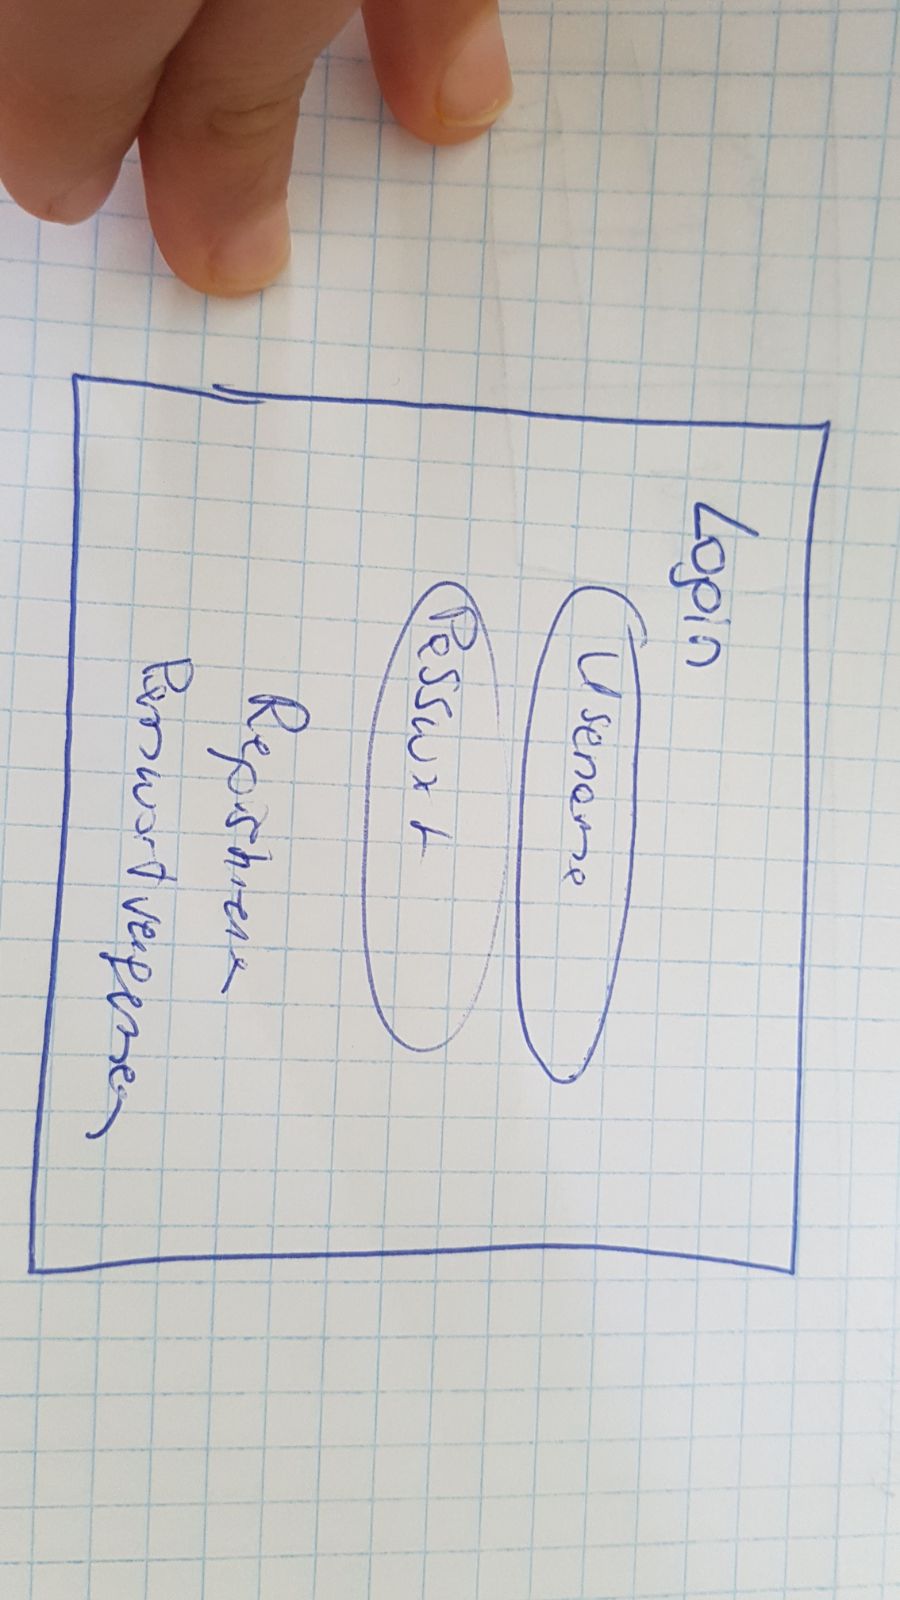 Login
Username
Passwort
Registrieren
Passwort vergessen